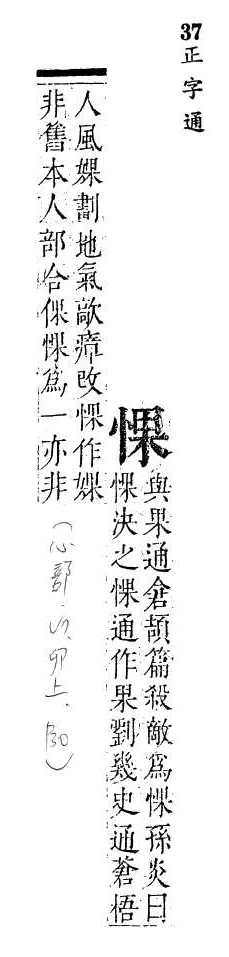 37
正字通
惈
與果通倉頡篇殺敵爲惈孫炎曰
惈決之惈通作果劉幾史通蒼梧
人風婐劃地氣歊瘴改惈作婐
非舊本人部合倮惈爲一亦非
（心部．卯上．）